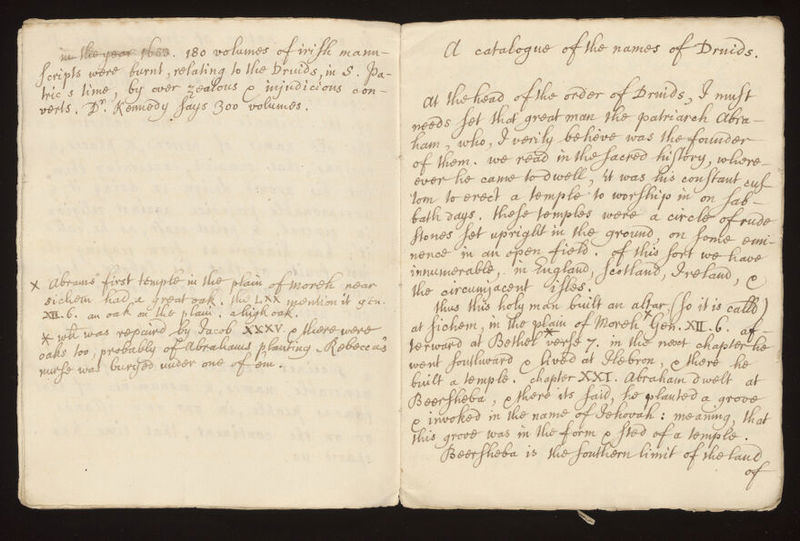 in the year 1689. 180 volumes of irish manu-
scripts were burnt, relating to the Druids, in S. Pa-
tric's time, by over zealous & injudicious con-
verts. Dr. Kennedy says 300 volumes.
x Abrams first temple in the plain of Moreh near
sichem had a great oak. the LXX mention it gen.
XII. 6. an oak in the plain. a high oak.
* wh was repaird by Jacob XXXV. & there were
oaks too, probably of Abrahams planting. Rebecca's
nurse was buryed under one of em.
A catalogue of the names of Druids.
At the head of the order of Druids, I must
needs set that great man the patriarch Abra-
ham, who, I verily believe was the founder
of them. we read in the sacred history, where-
ever he came to dwell, it was his constant cus
tom to erect a temple to worship in on sab-
bath days. these temples were a circle of rude
stones set upright in the ground, on some emi-
nence in an open field. of this sort we have
innumerable, in England, Scotland, Ireland, &
the circumjacent isles.
thus this holy man built an altar (so it is calld)
at Sichem, in the plain of Moreh x Gen. XII. 6. af-
terward at Bethel * verse 7. in the next chapter he
went southward & lived at Hebron, & there he
built a temple. chapter XXI. Abraham dwelt at
Beersheba, & there its said, he planted a grove
& invoked in the name of Jehovah: meaning, that
this grove was in the form & sted of a temple.
Beersheba is the southern limit of the land
of